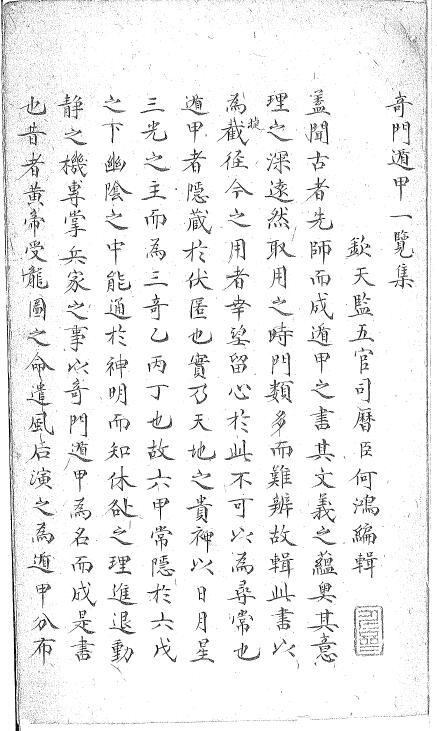 奇門遁甲一覽集
欽天監五官司曆臣何鴻編輯
蓋聞古者先師而成遁甲之書其文義之蘊奧其意
理之深遠然取用之時門類多而難辨故輯此書以
為截徑今之用者幸望留心於此不可以為尋常也
遁甲者隱藏於伏匿也實乃天地之貴神以日月星
三光之主而為三奇乙丙丁也故六甲常隱於六戊
之下幽陰之中能通於神明而知休咎之理進退動
靜之機專掌兵家之事以奇門遁甲為名而成是書
也昔者黃帝受龍圖之命遣風后演之為遁甲分布